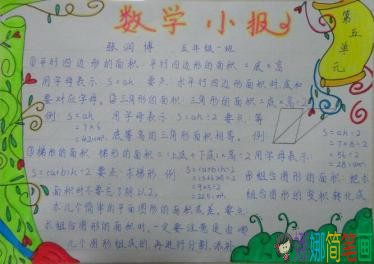 数学小报
第五单元
张润博 五年级一班
①平行四边形的面积：平行四边形的面积=底×高
用字母表示：S=ah 要点：求平行四边形面积时,底和
要对应字母。②三角形的面积：三角形的面积=底×高÷2
例：S=ah 用字母表示：S=ah÷2 要点：等
=7×6
底等高的三角形面积相等。例：S=ah÷2
=7×8÷2
=56÷2
=28
③梯形的面积：梯形的面积=(上底+下底)×高÷2 用字母表示：
要点：求梯形 例
面积时不要忘了除以2。
组合图形的面积：把
组合图形的面积转化成
几个简单的平面图形的面积或差。要点：
求组合图形的面积时,一定要注意是由哪
几个图形组成的,再进行分割、添补
娜简笔画